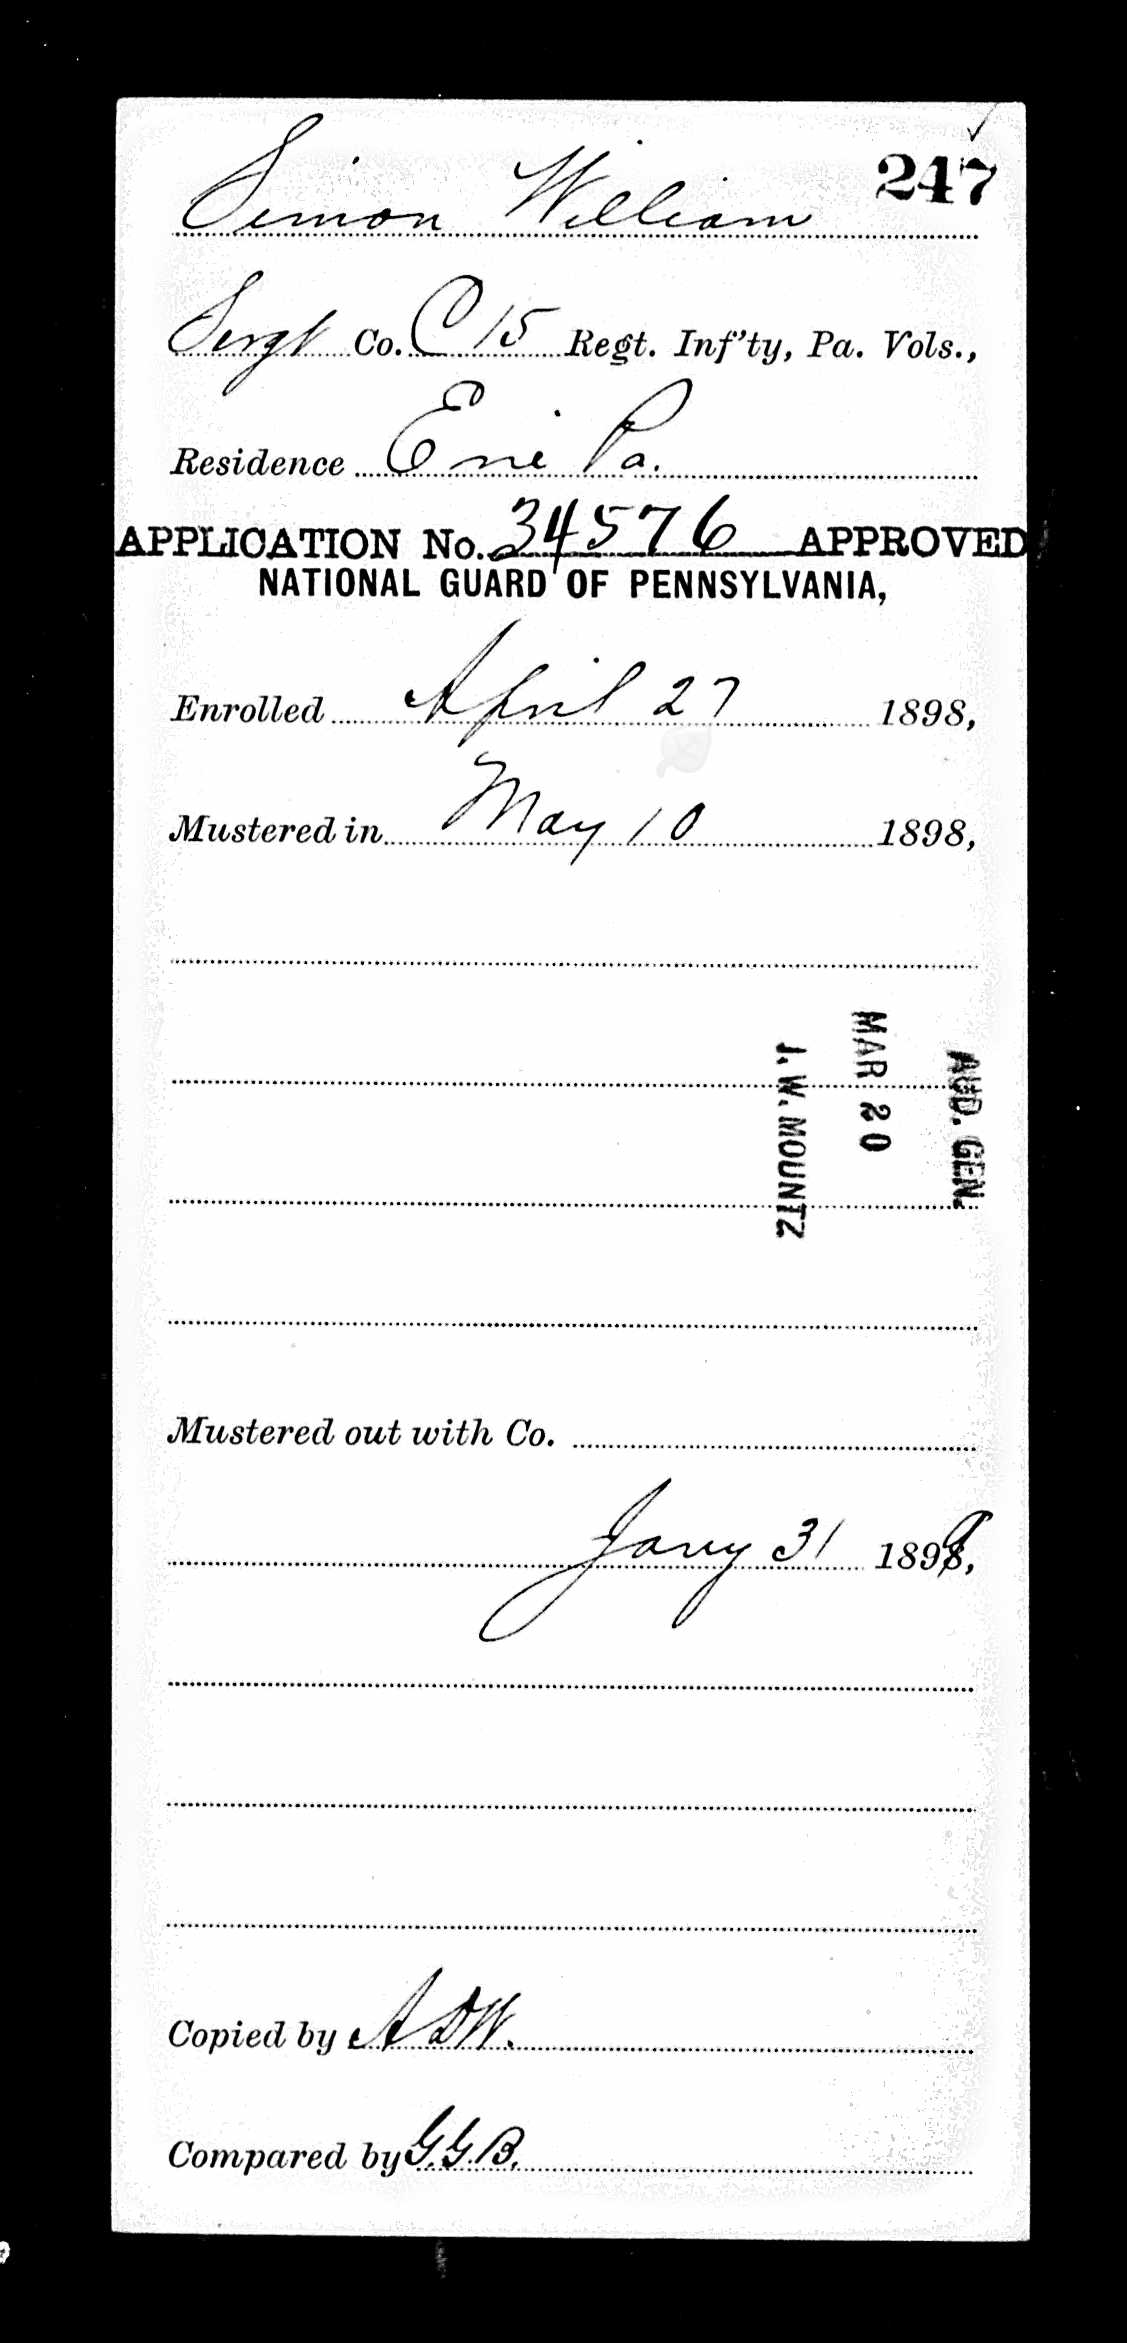 247
Simon William
Sergt Co. C 15 Regt. Inf'ty, Pa. Vols.,
Residence Erie Pa.
APPLICATION No. 34576 APPROVED
NATIONAL GUARD OF PENNSYLVANIA,
Enrolled April 27 1898,
Mustered in May 10 1898,
AUD. GEN.
MAR 20
J. W. MOUNTZ
Mustered out with Co.
Jany 31 1899,
Copied by ADW.
Compared by G.G.B.